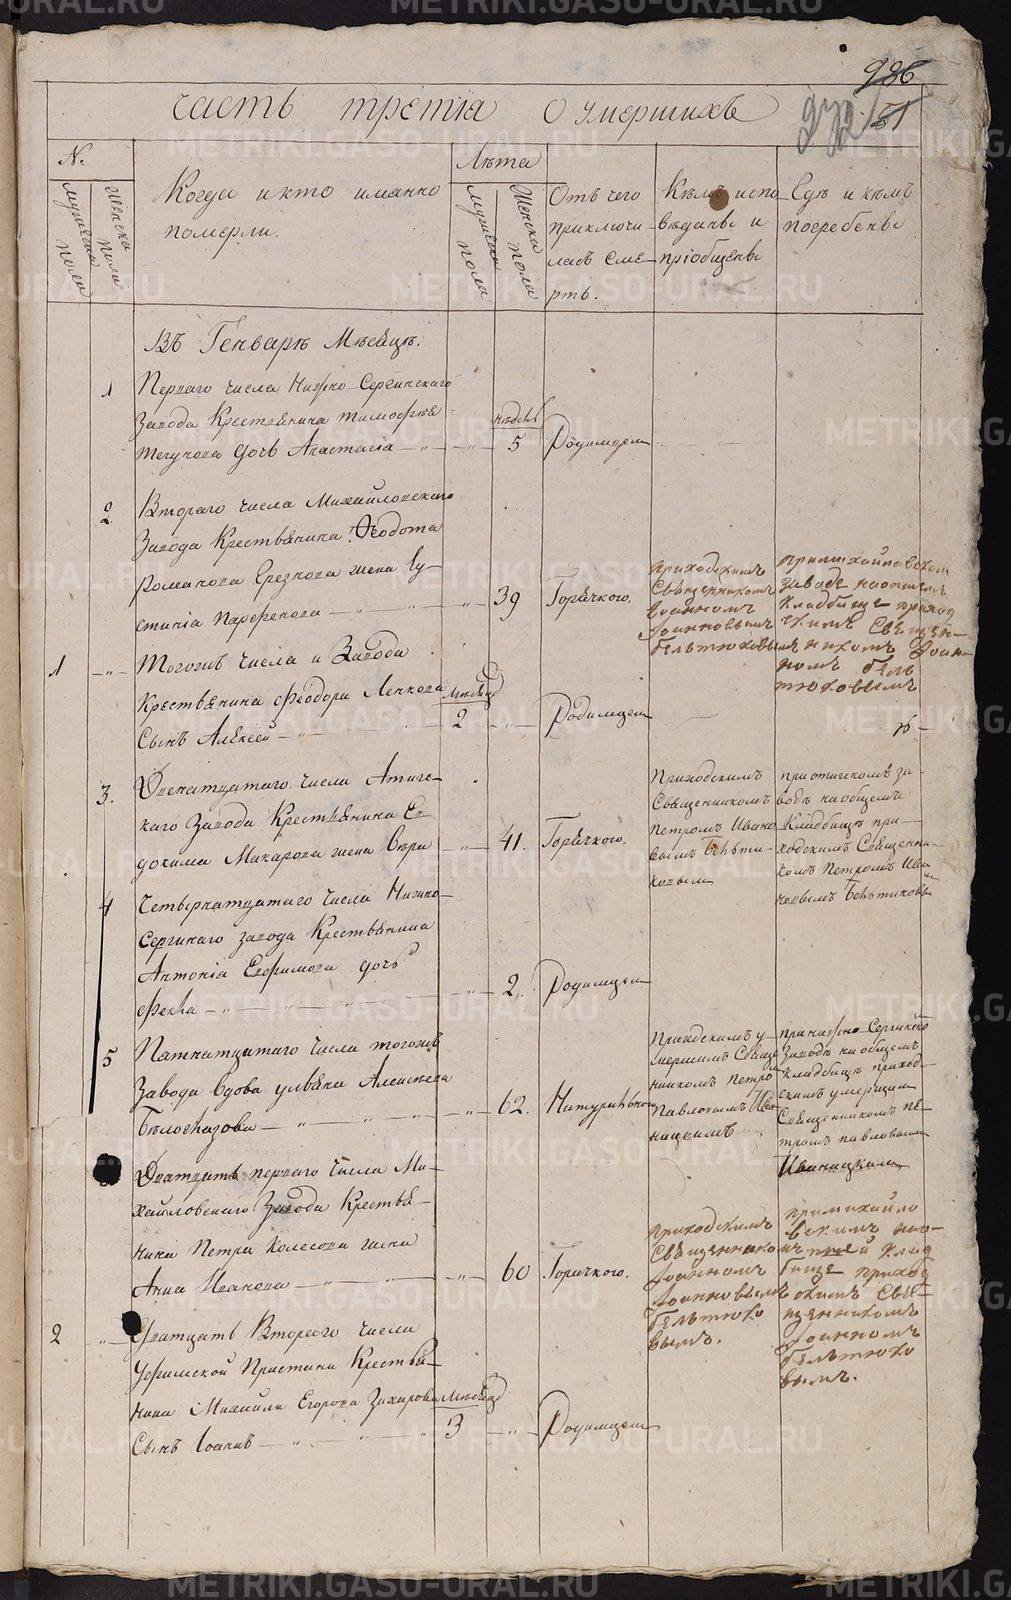 986
272
51
Часть третія О умершихъ
№.
Лѣта
мужеска пола
Женска пола
Когда и кто имянно
померли.
мужеска пола
Женска пола
Отъ чего
приключи-
лась сме-
рть.
Кѣмъ испо-
вѣданы и
пріобщены
Гдѣ и кѣмъ
погребены
Въ Генварѣ Мѣсяцѣ.
1 Перваго числа Нижно-Сергинскаго
завода Крестьянина Тимофѣя недѣль
дочь Анастасія 5 Родимцем
2 Втораго числа Михайловскаго
завода Крестьянина Ѳеодота
Романова жена Ев-
стинія Парфенова 39 Горячкого.
приходскимъ
Священникомъ
Іоанномъ
Іоанновымъ
Бельтюковымъ
при михайловском
заводе на опщем
Кладбище приход
скимъ Священ-
никомъ Іоан-
номъ Бель
тюковымъ
1 Тогогжъ числа и завода
Крестьянина Феодора месяц
Сынъ Алексей 2 Родимцем
3. Двенатцатаго числа Атиг-
каго завода Крестьянина Ев-
докима Макарова жена Вѣра 41. Горячкого.
Приходскимъ
Священникомъ
Петромъ Ивано
вымъ
при атигскомъ за-
водѣ на общемъ
Кладбищѣ при-
ходскимъ Священни-
комъ Петромъ Ива
новымъ
4 Четырнатцатаго числа Нижно-
Сергинкаго завода Крестьянина
Антонія Ефимова дочь
Фекла 2. Родимцем
5 Пятнатцатаго числа тогогжъ
завода вдова ульяна Алексѣева
Бѣлоглазова 62. Натуральною
Приходскимъ у
мершимъ Свяще
нникомъ Петро
Павловымъ Ива
ницкимъ
при нижно-Сергинско
заводѣ на общемъ
Кладбищѣ приход-
скимъ умершим
Священникомъ Пе-
тромъ павловым
Иваницким
Дватцать перваго числа Ми-
хайловскаго завода Крестья-
нина Петра Колесова жена
Анна Иванова 60 Горячкого.
приходскимъ
Священникомъ
Іоанномъ
Іоанновымъ
Бельтюко
вымъ.
при михайло
вскимъ
Клад
бище приход
скимъ Свя-
щенникомъ
Іоанномъ
Бельтюко
вымъ.
2 Дватцать Втораго числа
Уфимской Пристани Крестья-
нина Михаила Егорова Захарова месяц
Сынъ Іоаннъ 3 Родимцем
METRIKI.GASO-URAL.RU